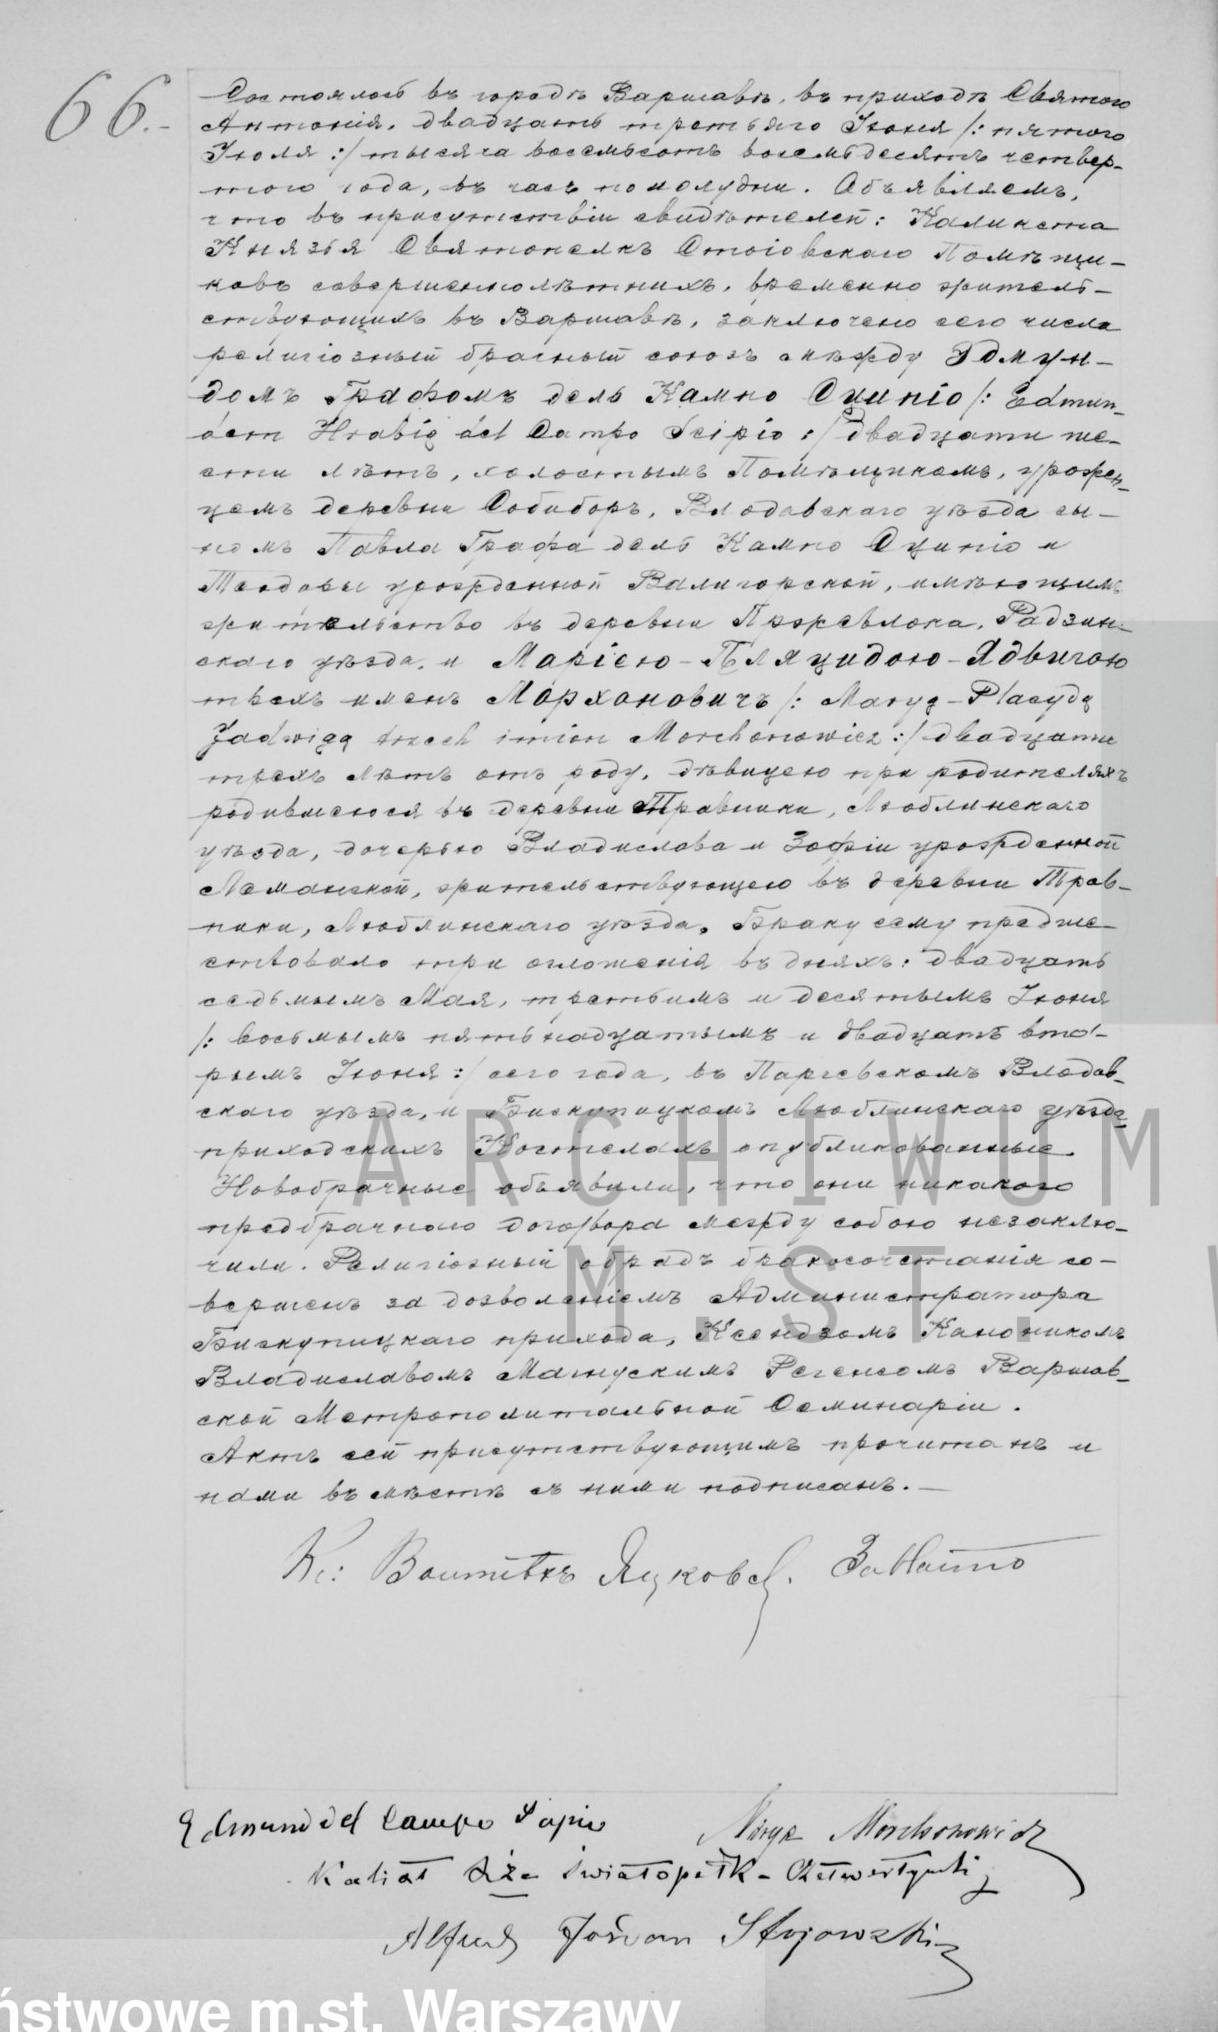 66.-
Состоялось въ городѣ Варшавѣ, въ приходѣ Святого
Антонія, двадцать третьяго Іюня /: пятого
Іюля :/ тысяча восемьсотъ восемьдесятъ четвер-
того года, въ часъ пополудни. Объявляемъ,
что въ присутствіи свидѣтелей: Каликста
Князья Святополкъ Стоіовскаго Помѣщи-
ковъ совершеннолѣтнихъ, временно жительс-
ствующихъ въ Варшавѣ, заключено сего числа
религіозный брачный союзъ между Эдмун-
домъ Графомъ дель Кампо Сципіо /: Edmun-
dem Hrabią del Campo Scipio :/ двадцати ше-
сти лѣтъ, холостымъ Помѣщикомъ, урожен-
цемъ деревни Собиборъ, Влодавскаго уѣзда сы-
номъ Павла Графа дель Кампо Сципіо и
Теодоры урожденной Валигорской, имѣющимъ
жительство въ деревни Пржевлока, Радзин-
скаго уѣзда, и Маріею-Пляцидою-Ядвигою
трехъ именъ Морхоновичъ /: Maryą-Placydą
Jadwigą trzech imion Morchonowicz :/ двадцати
трехъ лѣтъ отъ роду, дѣвицею при родителяхъ
родившеюся въ деревни Травники, Люблинскаго
уѣзда, дочерью Владислава и Зофіи урожденной
Леманской, жительствующею въ деревни Трав-
ники, Люблинскаго уѣзда. Браку сему предше-
ствовало три оглошенія въ дняхъ: двадцать
седьмымъ Мая, третьимъ и десятымъ Іюня
/: восьмымъ пятьнадцатымъ и двадцать вто-
рымъ Іюня :/ сего года, въ Парчевскомъ Влодав-
скаго уѣзда, и Бискупицкомъ Люблинскаго уѣзда
приходскихъ Костелахъ опубликованные.
Новобрачные объявили, что они никакого
предбрачного договора между собою незаклю-
чили. Религіозный обрядъ бракосочетанія со-
вершенъ за дозволеніемъ Администратора
Бискупицкаго прихода, Ксендзомъ Каноникомъ
Владиславомъ Магнускимъ Регенсомъ Варшав-
ской Метрополитальной Семинаріи.
Актъ сей присутствующимъ прочитанъ и
нами въ мѣстѣ съ ними подписанъ.—
Кс:
Edmund del Campo Scipio Marya Morchonowicz
Kalixt Xże Światopełk-Czetwertyński
Alfred Jordan Stojowski
ARCHIWUM
M. ST. W
ństwowe m.st. Warszawy